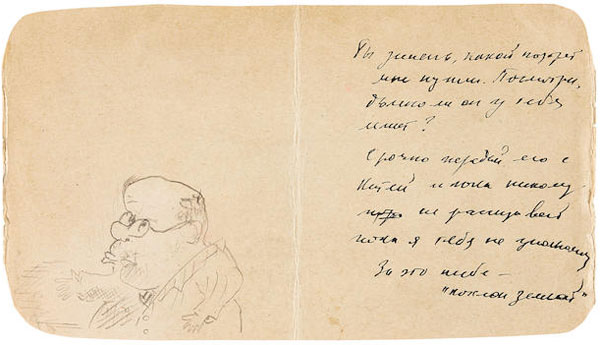 Ты знаешь, какой портрет
мне нужен. Посмотри,
у тебя
?
Срочно передай его с
Катей и пока никому
не рассказывай
пока я тебя не
За это тебе –
"поклон земной"